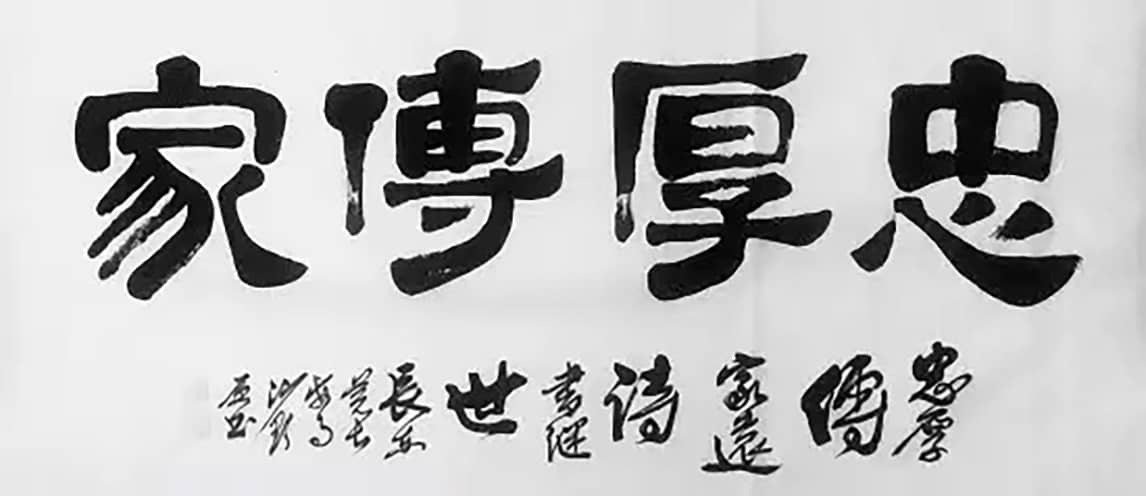 忠厚傳家
忠厚
傳
家遠
詩
書继
世
長安